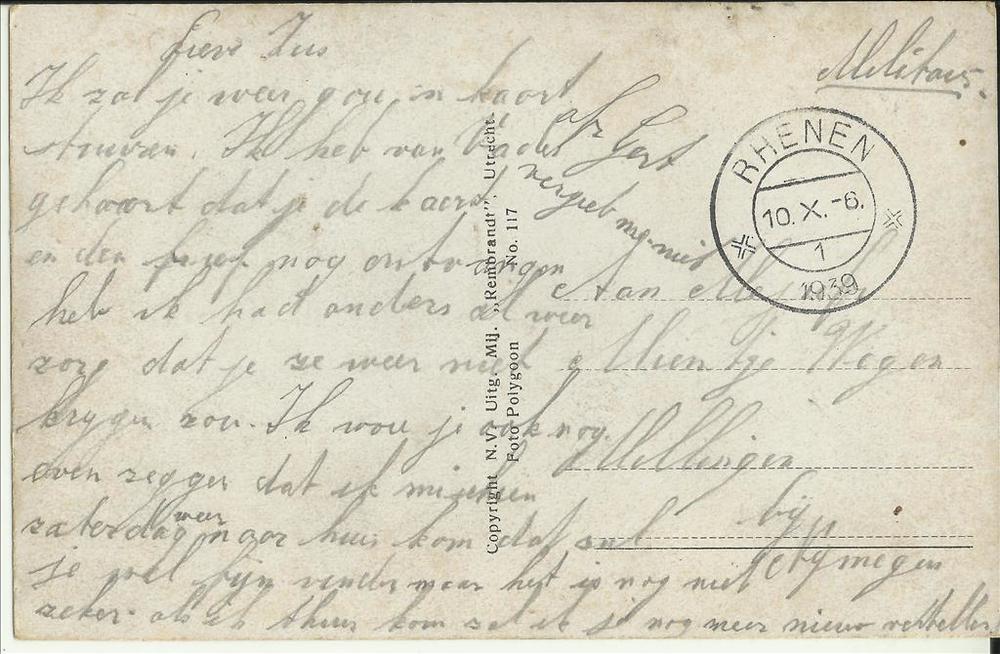 Lieve Zus
Ik zal je weer gou in kaart
stuuren. Ik heb van Vader
gehoort dat je de kaart
en den brief nog ontvangen
heb ik had anders al weer
zorg dat je ze weer niet
krygen zou. Ik wou je ook nog
even zeggen dat ik misscien
zaterdag weer naar huis kom dat zal
je wel fijn vinden maar het is nog niet
zeker. als ik thuis kom zal ik je nog meer nieuw vertellen
afz Gert
vergeet my niet
Militair.
RHENEN
10.X.-6.
1
1939
Aan Mejuf
Mientje Wegen
Millingen
bij
Nymegen
Copyright N.V. Uitg. Mij. „Rembrandt", Utrecht.
Foto Polygoon No. 117